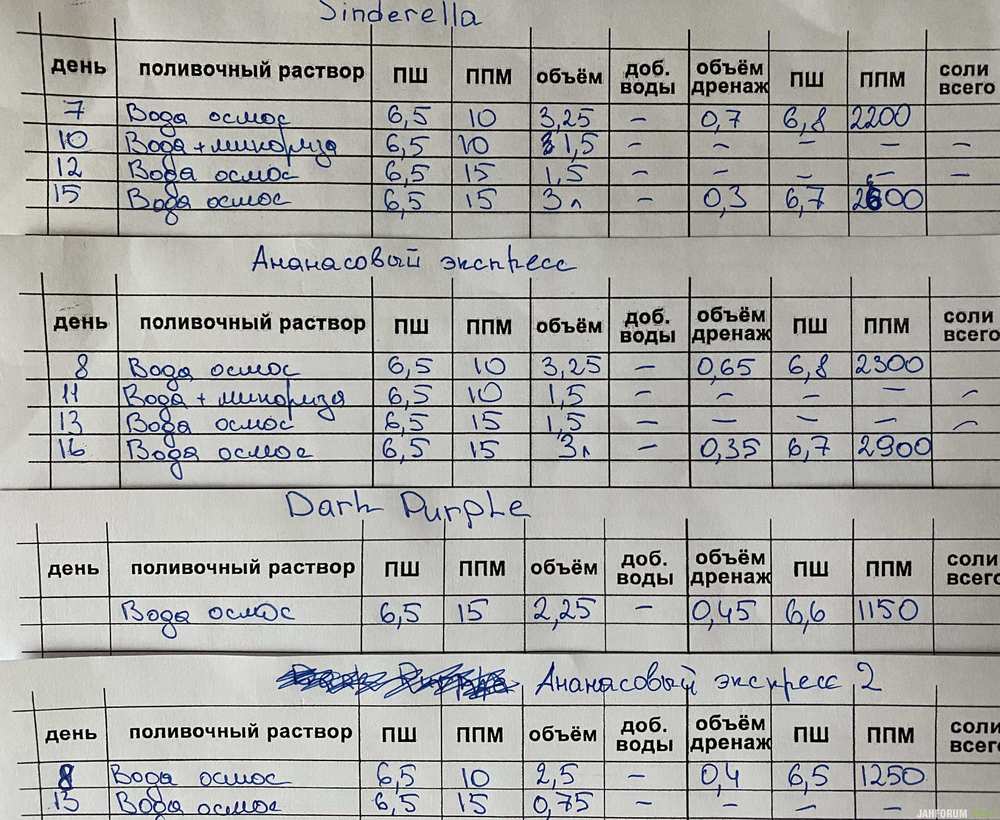 Sinderella
день поливочный раствор ПШ ППМ объём доб. воды объём дренаж ПШ ППМ соли всего
7 Вода осмос 6,5 10 3,25 – 0,7 6,8 2200
10 Вода + микориза 6,5 10 1,5 – – – – –
12 Вода осмос 6,5 15 1,5 – – – – –
15 Вода осмос 6,5 15 3л – 0,3 6,7 2600
Ананасовый экспресс
день поливочный раствор ПШ ППМ объём доб. воды объём дренаж ПШ ППМ соли всего
8 Вода осмос 6,5 10 3,25 – 0,65 6,8 2300
11 Вода + микориза 6,5 10 1,5 – – – – –
13 Вода осмос 6,5 15 1,5 – – – – –
16 Вода осмос 6,5 15 3л – 0,35 6,7 2900
Dark Purple
день поливочный раствор ПШ ППМ объём доб. воды объём дренаж ПШ ППМ соли всего
Вода осмос 6,5 15 2,25 – 0,45 6,6 1150
Ананасовый экспресс 2
день поливочный раствор ПШ ППМ объём доб. воды объём дренаж ПШ ППМ соли всего
8 Вода осмос 6,5 10 2,5 – 0,4 6,5 1250
13 Вода осмос 6,5 15 0,75 – – – –
JAHFORUM